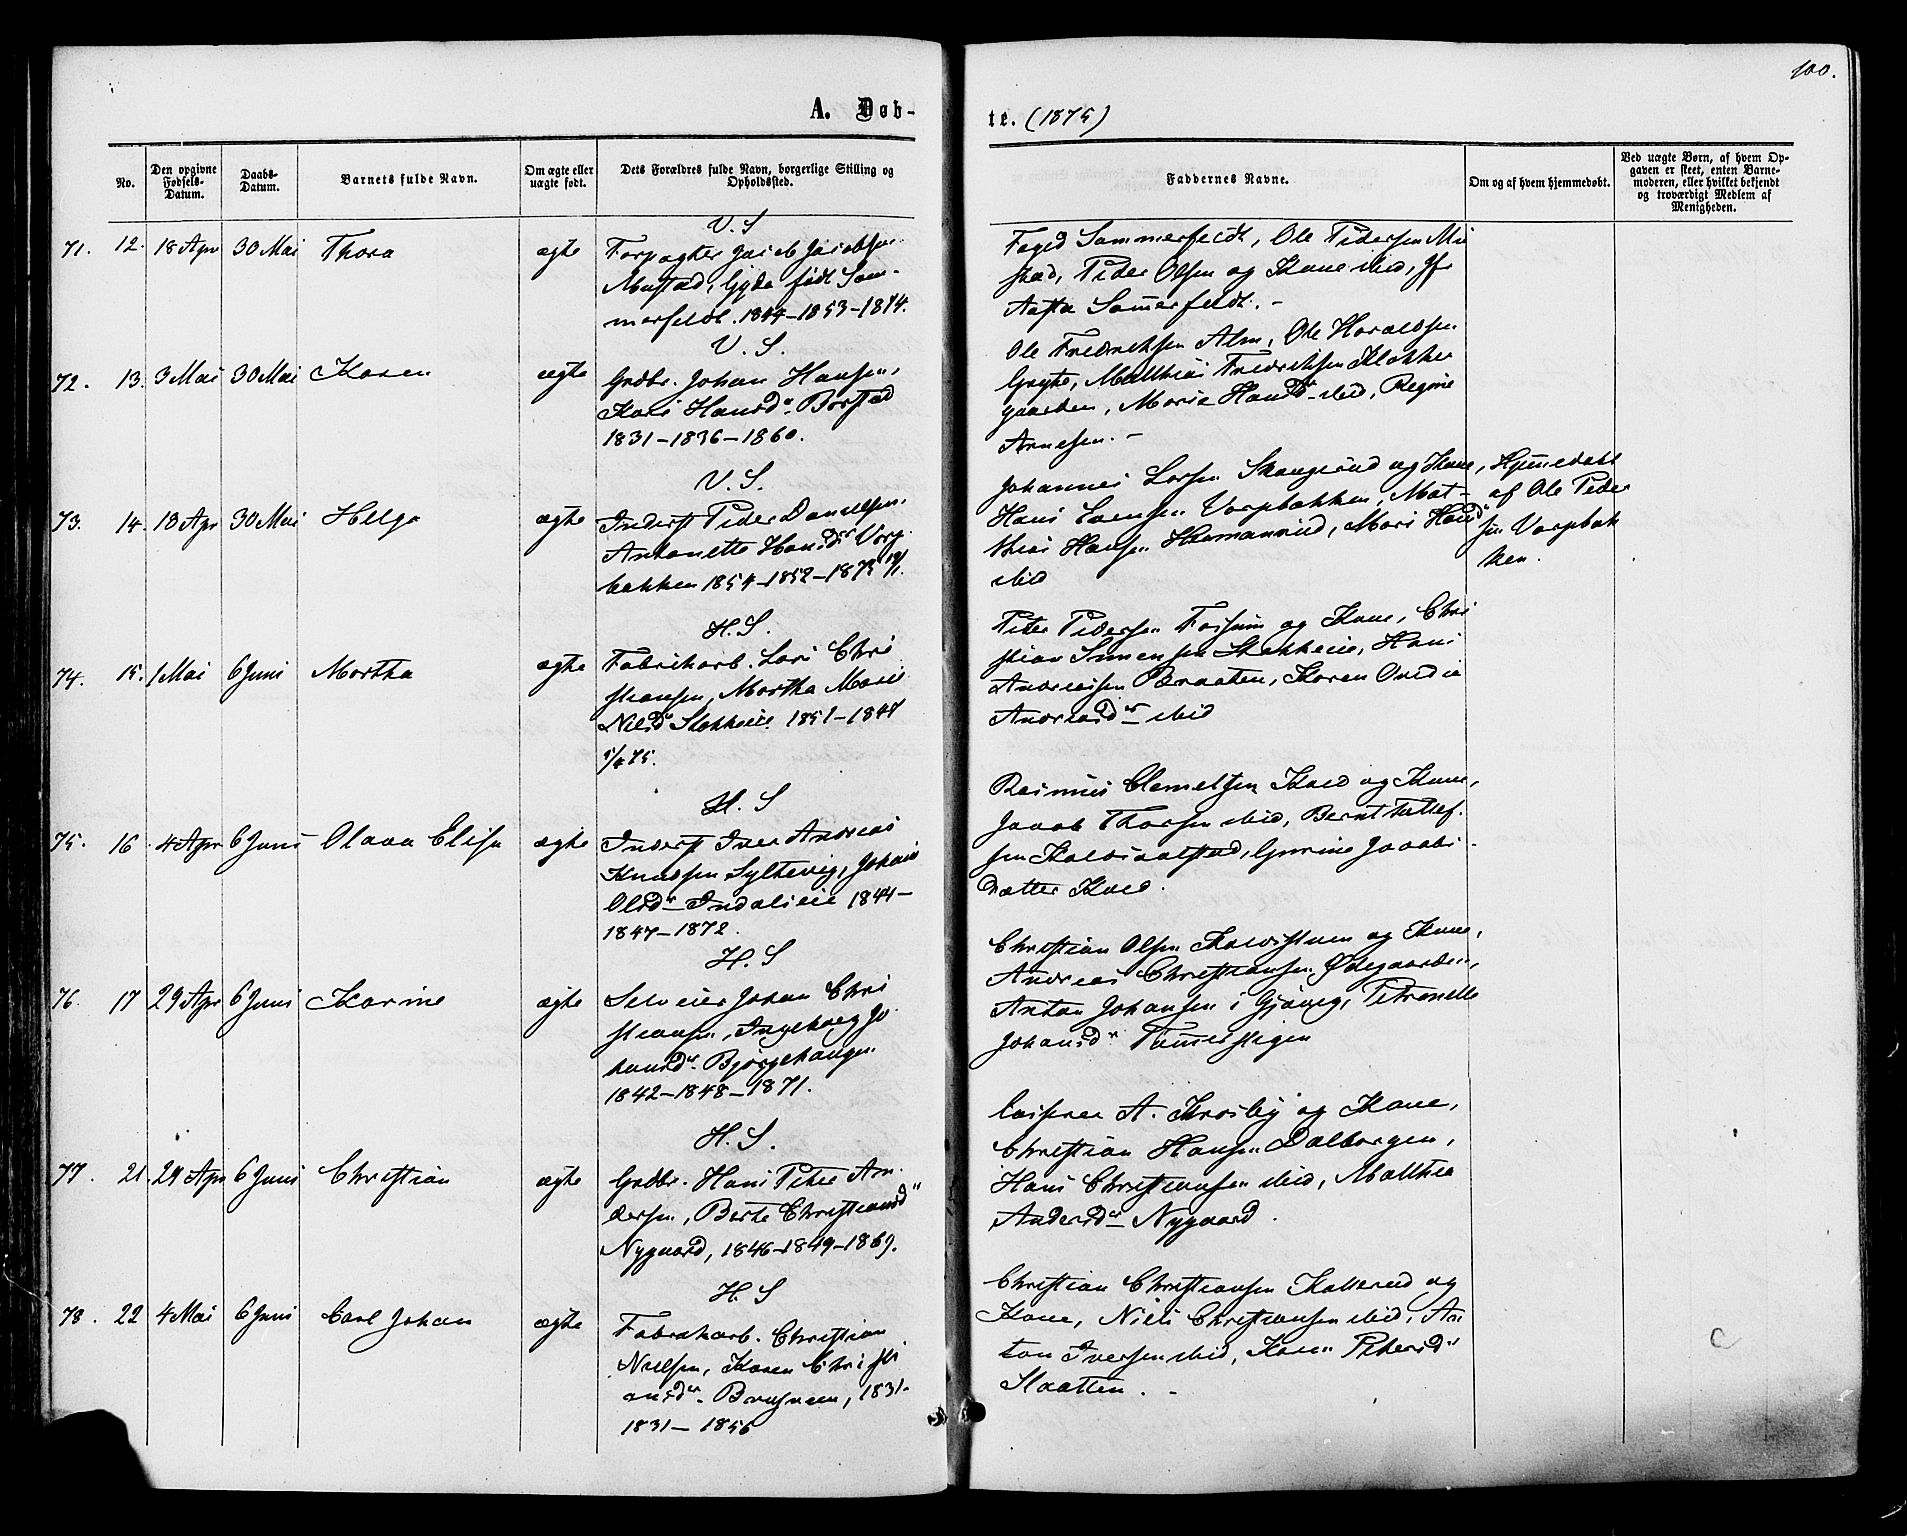 100.
A. Døb-
te. (1875)
No.
Den opgivne Fødsels-Datum.
Daabs-Datum.
Barnets fulde Navn.
Om ægte eller uægte født.
Dets Forældres fulde Navn, borgerlige Stilling og Opholdssted.
Faddernes Navne.
Om og af hvem hjemmedøbt.
Ved uægte Børn, af hvem Opgaven er skeet, enten Barnemoderen, eller hvilket bekjendt og troværdigt Medlem af Menigheden.
V. S
71. 12. 18 Apr 30 Mai Thora ægte Forpagter Jacob Jacobsen
Mustad, Gyda født Som-
merfeldt. 1844-1853-1874.
Foged Sommerfeldt, Ole Pedersen Mu
stad, Peder Olsen og Kone ibid, Jfr
Aasta Somerfeldt. -
V. S.
72. 13. 3 Mai 30 Mai Karen ægte Grdbr. Johan Hansen,
Kari Hansdr. Borstad
1831-1836-1860.
Ole Fredriksen Alm, Ole Haraldsen
Gryte, Matthias Fredriksen Klokker
gaarden, Marie Hansdr ibid, Regine
Arnesen. -
V. S.
73. 14. 18 Apr 30 Mai Helga ægte Inderst Peder Danielsen
Antonette Hansdr Vorp
bakken 1854-1852-1875
Johannes Larsen Skaugerud og Kone,
Hans Evensen Vorpbakken, Mat-
thias Hansen Hermanrud, Mari Hansdr
ibid
Hjemedøbt
af Ole Peder
sen Vorpbak
ken.
H. S.
74. 15. 1 Mai 6 Juni Martha ægte Fabrikarb. Lars Chri
stiansen, Martha Marie
Nilsdr Stokkeeie 1851-1847
5/4 75.
Peter Pedersen Fossum og Kone, Chri
stian Simensen Stokkeeie, Hans
Andreassen Braaten, Karen Ovedia
Andreasdr ibid
H. S
75. 16 4 Apr 6 Juni Olava Elise ægte Inderst Iver Andreas
Knudsen Syltevig, Johanne
Olsdr Indalseie 1844-
1847-1872.
Rasmus Clemetsen Kold og Kone,
Jacob Thorsen ibid, Bernt Tollef
sen Koldsvalstad, Gurine Jacobs-
datter Kold.
H. S
76. 17 29 Apr 6 Juni Karine ægte Selveier Johan Chri
stiansen, Ingeborg Jo
hansdr. Bjørgehaugen
1842-1848-1871.
Christian Olsen Koldstuen og Kone,
Andreas Christiansen Ødegaarden,
Anton Johansen i Gjøvig, Petronelle
Johansdr Tømerstigen
H. S.
77. 21. 29 Apr 6 Juni Christian ægte Grdbr. Hans Peter An-
dersen, Berte Christiansdr
Nygaard, 1846-1849-1869.
Casper A. Krosby og Kone,
Christian Hansen Dalborgen,
Hans Christiansen ibid, Mathea
Andersdr Nygaard.
H. S
78. 22 4 Mai 6 Juni Carl Johan ægte Fabrikarb. Christian
Nielsen, Karen Christi
ansdr. Brusveen, 1831-
1831-1856
Christian Christiansen Kallerud og
Kone, Niels Christiansen ibid, An
ton Iversen ibid, Karen Petersdr
Slaatten. -
C